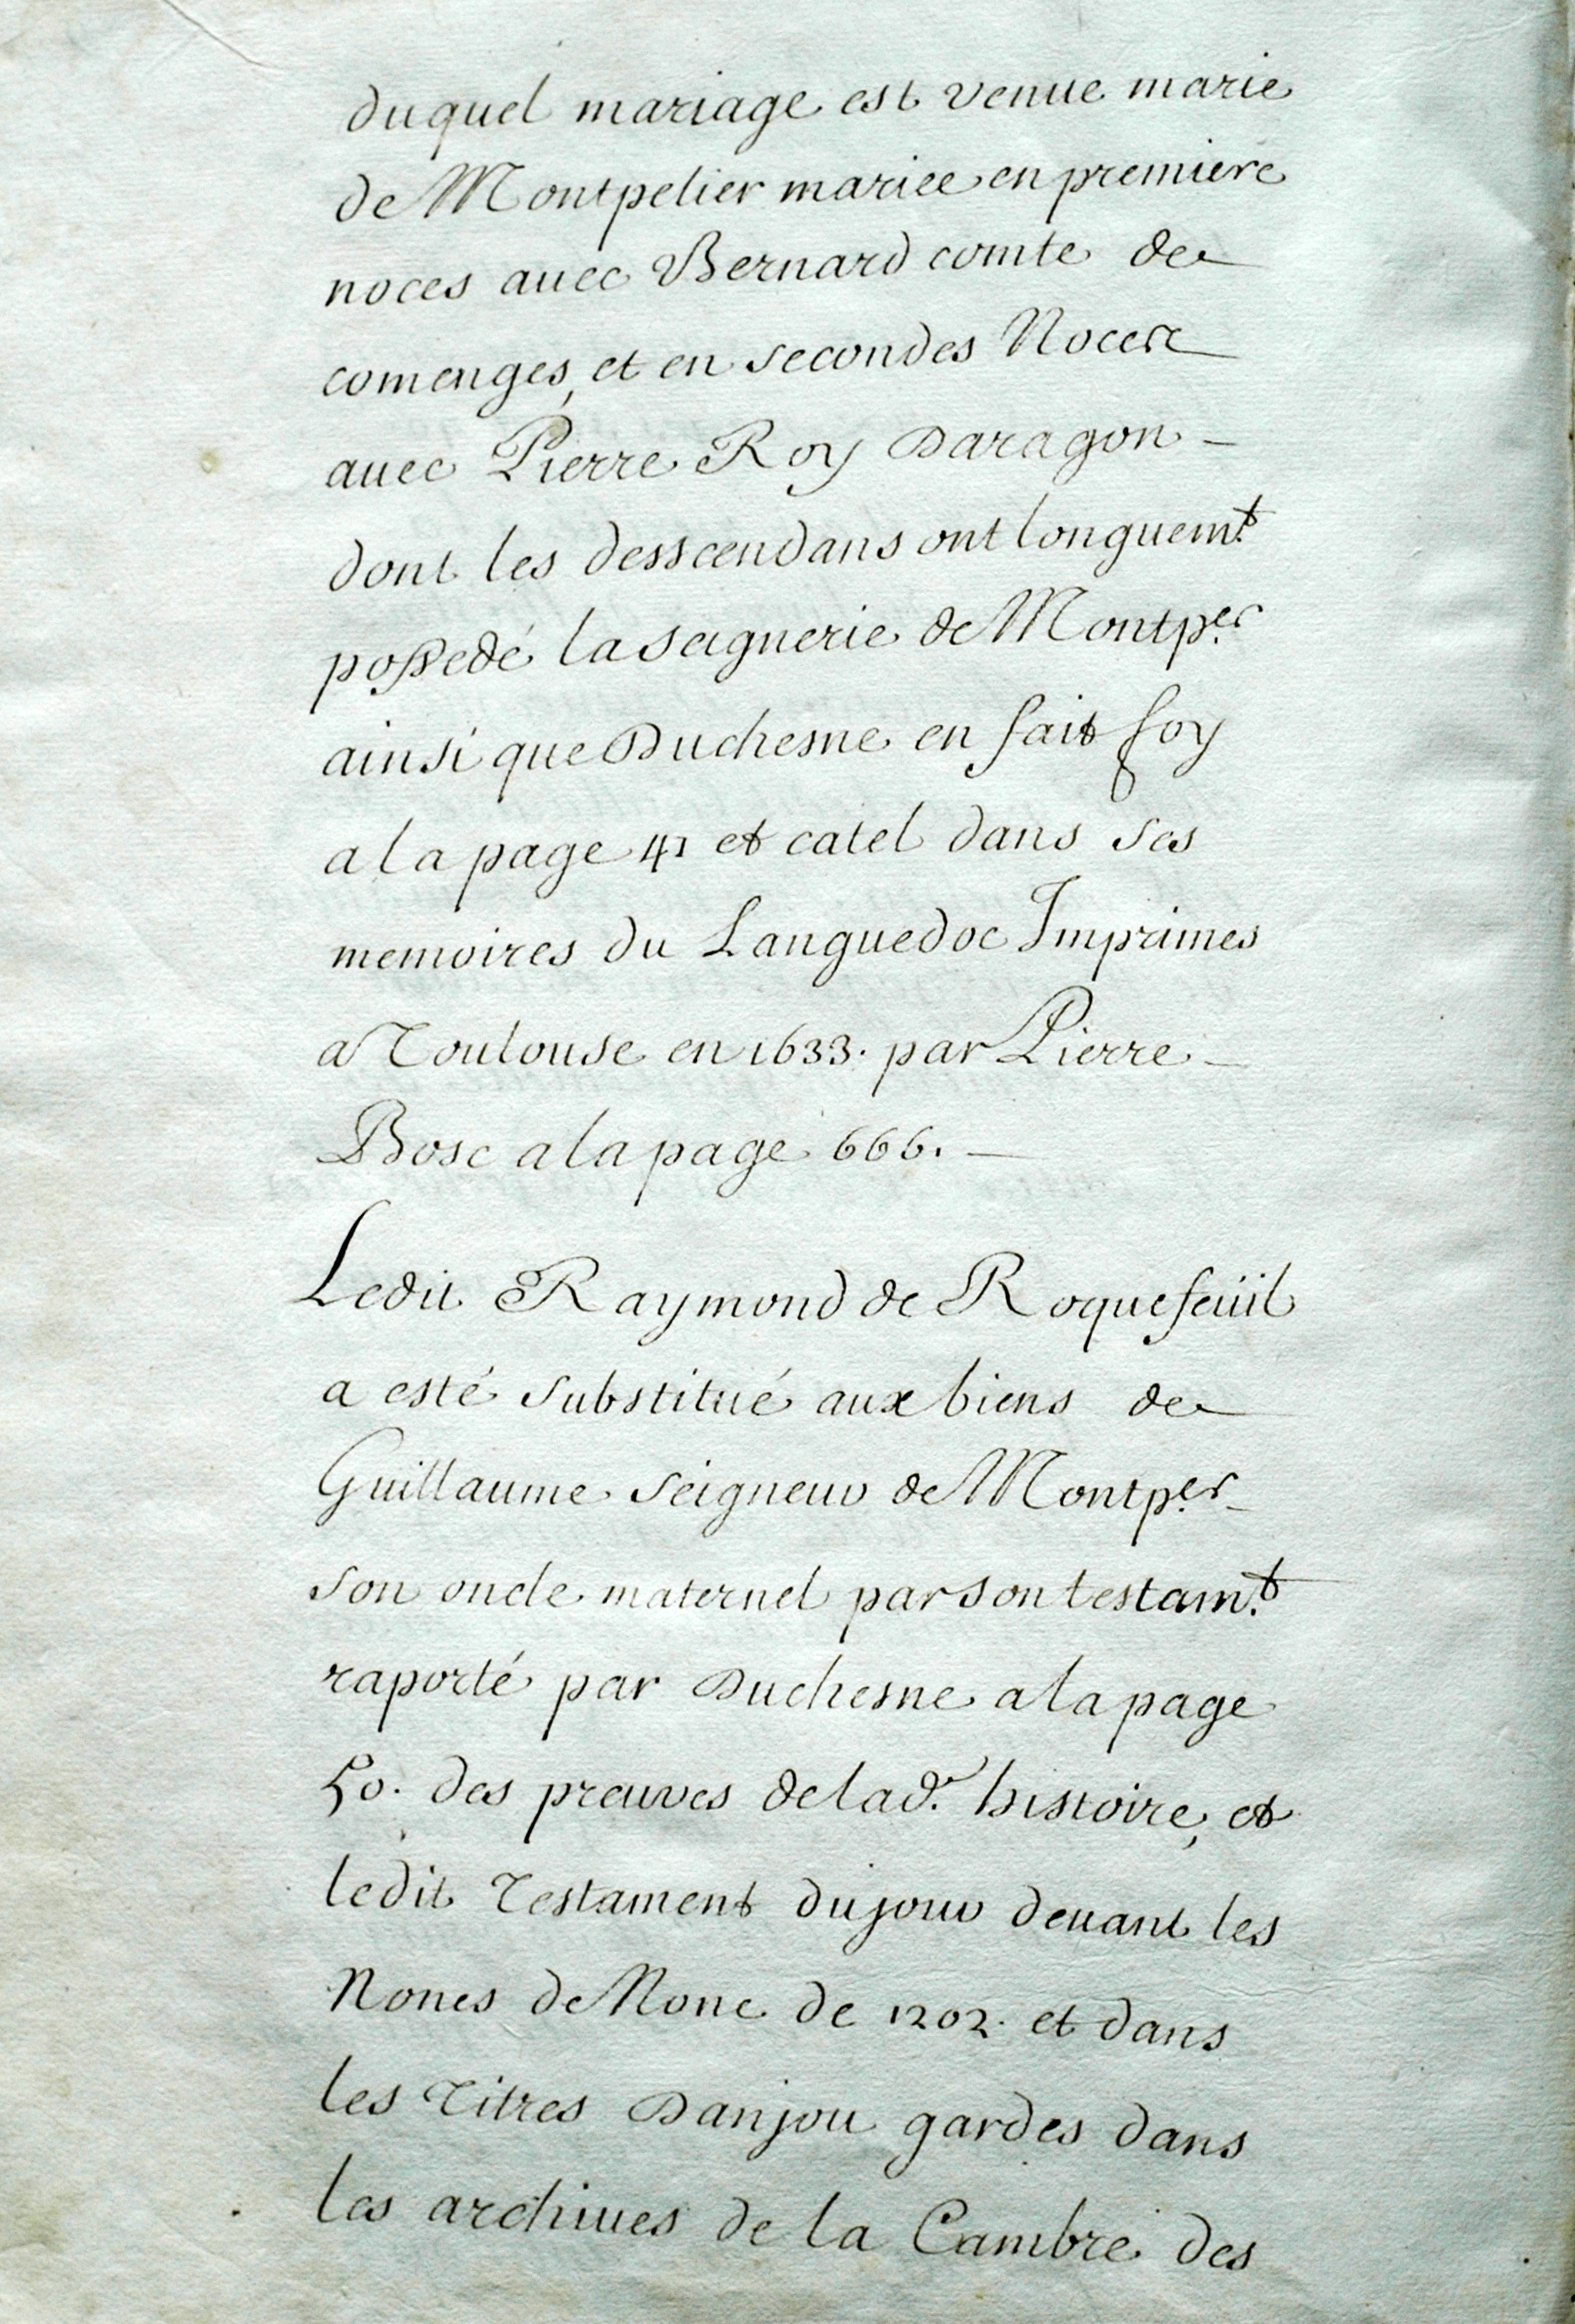 duquel mariage est venue marie
de Montpelier mariee en premiere
noces auec Bernard comte de
comenges, et en secondes Noces
auec Pierre Roy Daragon -
dont les desscendans ont longuemt.
possedé la seignerie de Montper.
ainsi que Duchesne en fait foy
a la page 41 et catel dans ses
memoires du Languedoc Imprimes
a Toulouse en 1633. par Pierre -
Bosc a la page 666. -
Ledit Raymond de Roquefeüil
a esté substitué aux biens de
Guillaume seigneur de Montper. -
son oncle maternel par son testamt.
raporté par Duchesne a la page
50. des preuves de lad. histoire, et
ledit Testament du jour deuant les
Nones de None de 1202. et dans
les Titres Danjou gardes dans
les archiues de la Cambre des